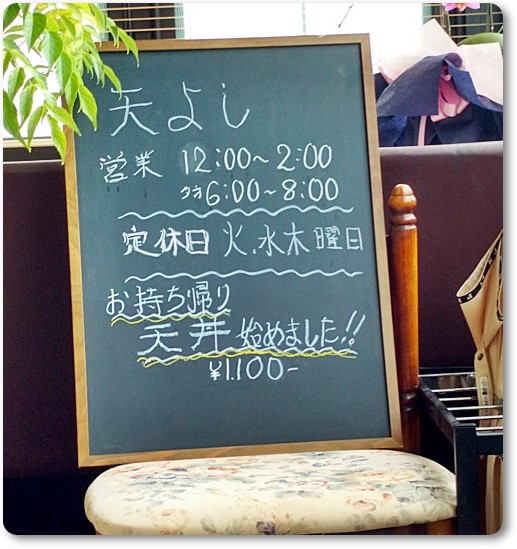 天よし
営業 12:00〜2:00
夕方6:00〜8:00
定休日 火.水.木曜日
お持ち帰り
天丼 始めました!!
¥1.100-